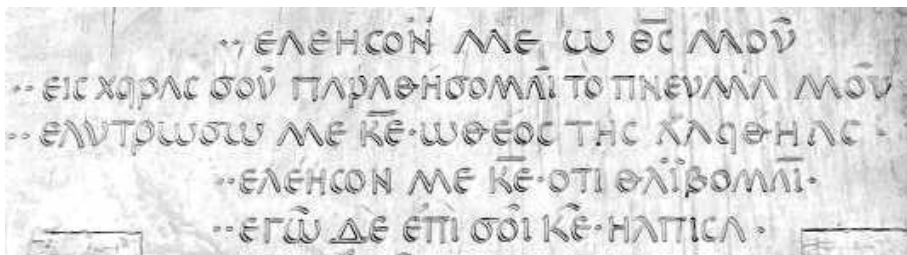 ·· ΕΛΕΗCΟΝ ΜΕ Ω Θ̅C̅ ΜΟΥ
·· ΕΙC ΧΩΡΑC CΟΥ ΠΑΡΑΘΗCΟΜΑΙ ΤΟ ΠΝΕΥΜΑ ΜΟΥ
·· ΕΛΥΤΡΩCΩ ΜΕ Κ̅Ε̅ · ΩΘΕΟC ΤΗC ΑΛΩΘΗΑC ·
·· ΕΛΕΗCΟΝ ΜΕ Κ̅Ε̅ · ΟΤΙ ΘΛΙΒΟΜΑΙ ·
·· ΕΓΩ ΔΕ ΕΠΙ CΟΙ Κ̅Ε̅ · ΗΛΠΙCΑ ·